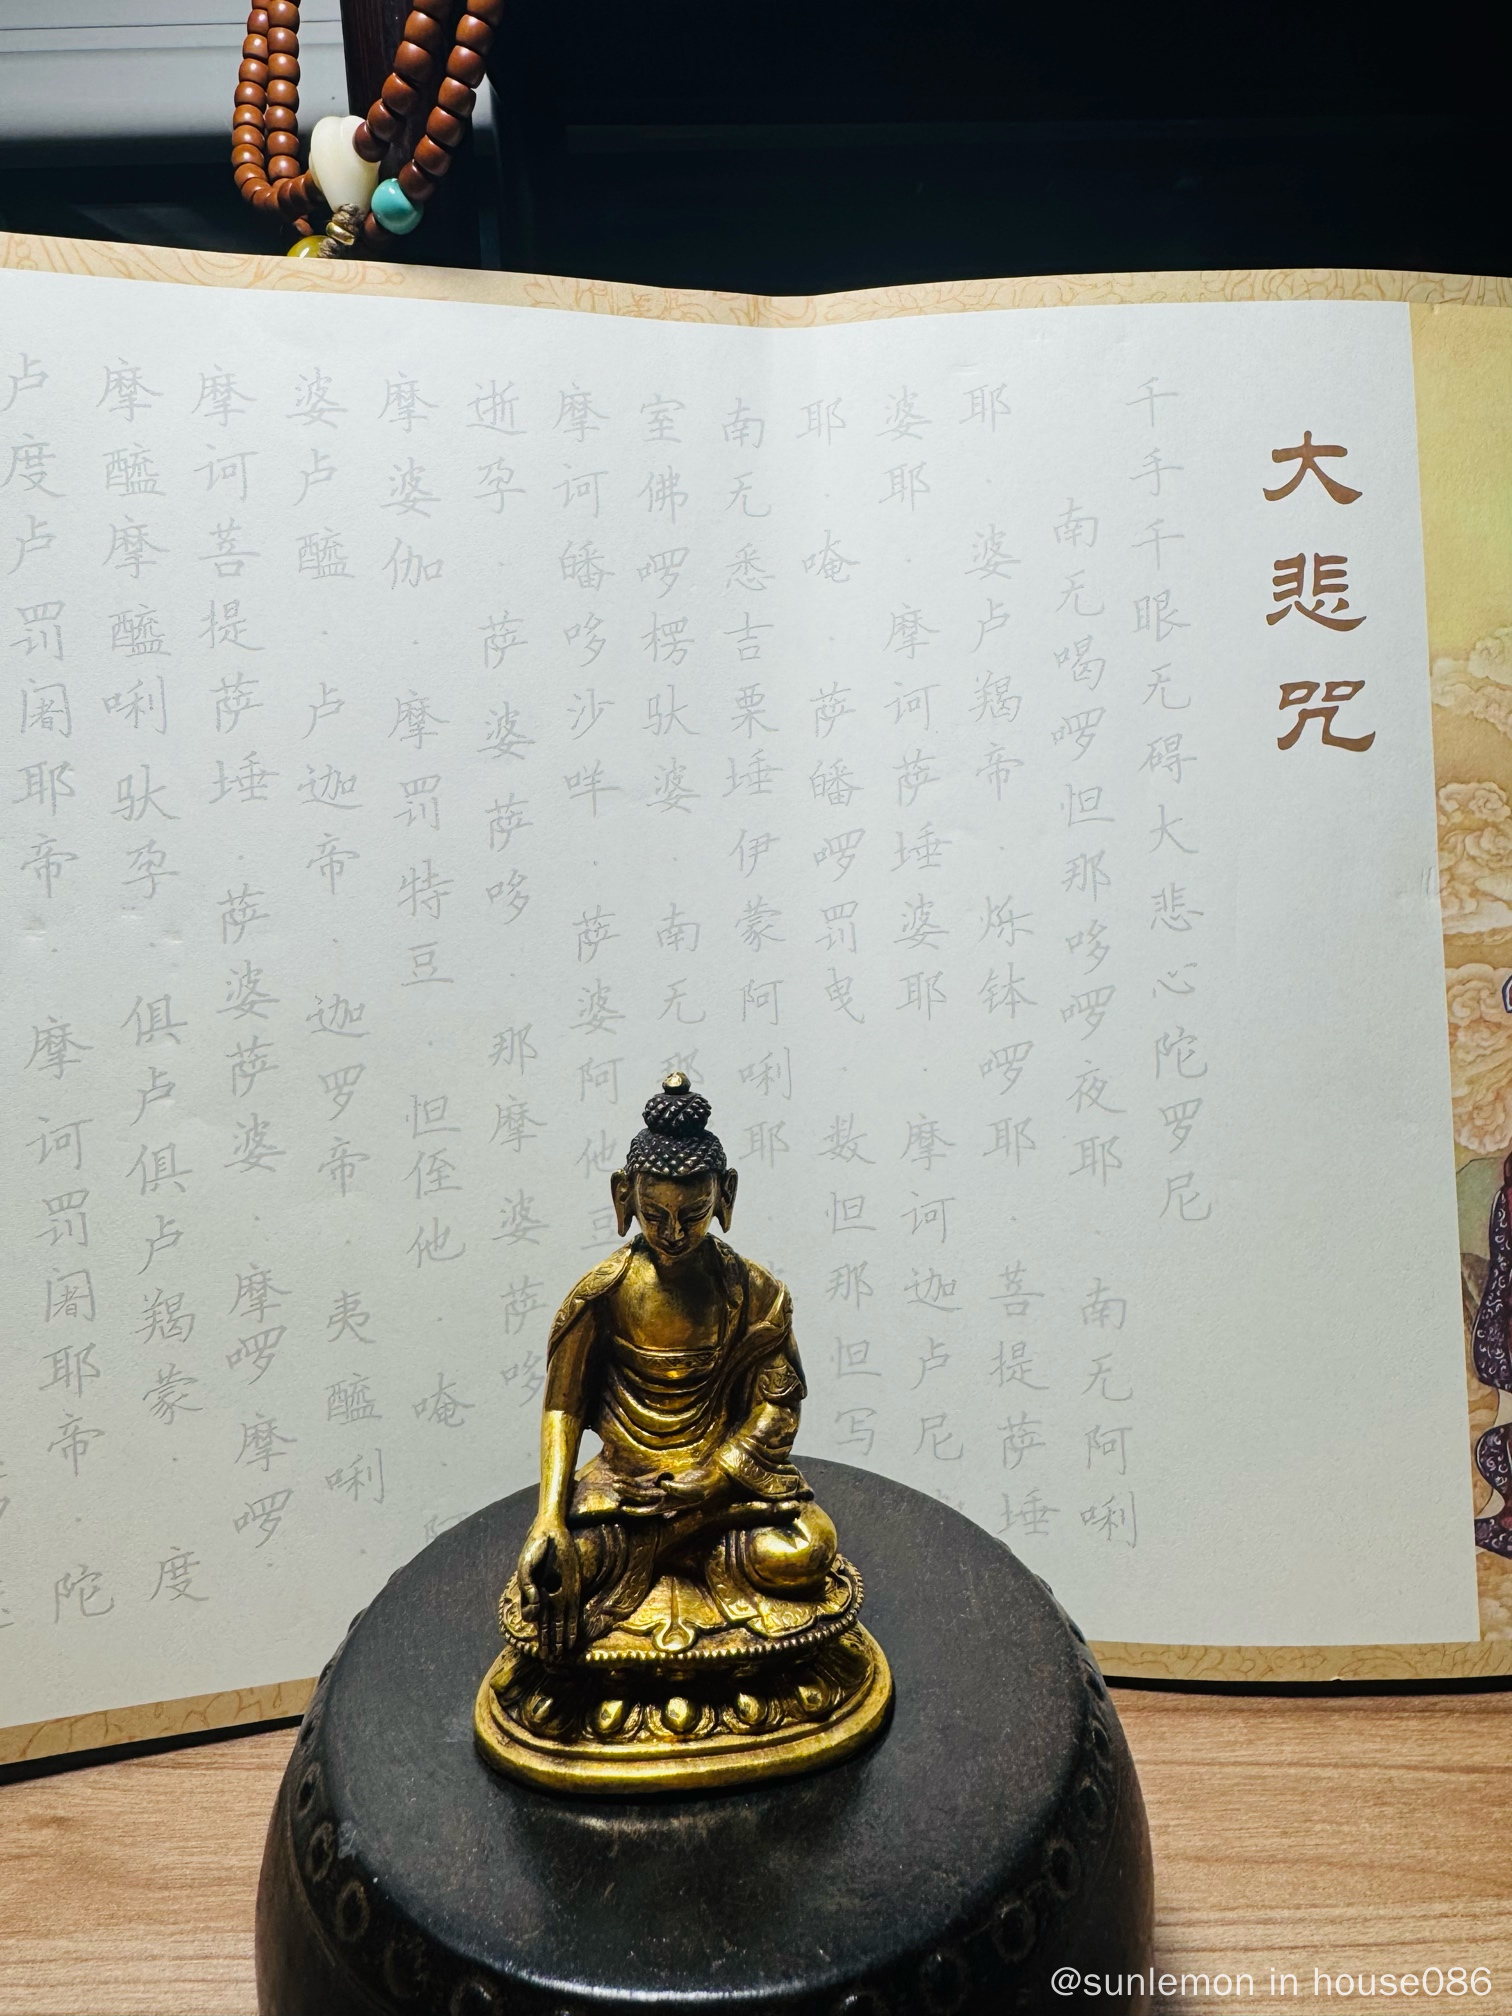 大悲咒
千手千眼无碍大悲心陀罗尼
南无喝啰怛那哆啰夜耶．南无阿唎
耶．婆卢羯帝．烁钵啰耶．菩提萨埵
婆耶．摩诃萨埵婆耶．摩诃迦卢尼
耶．唵．萨皤啰罚曳．数怛那怛写
南无悉吉栗埵伊蒙阿唎耶
室佛啰楞驮婆．南无那
摩诃皤哆沙咩．萨婆阿他豆
逝孕．萨婆萨哆．那摩婆萨哆
摩婆伽．摩罚特豆．怛侄他．唵．阿
婆卢醯．卢迦帝．迦罗帝．夷醯唎
摩诃菩提萨埵．萨婆萨婆．摩啰摩啰
摩醯摩醯唎驮孕．俱卢俱卢羯蒙．度
卢度卢罚阇耶帝．摩诃罚阇耶帝．陀
@sunlemon in house086